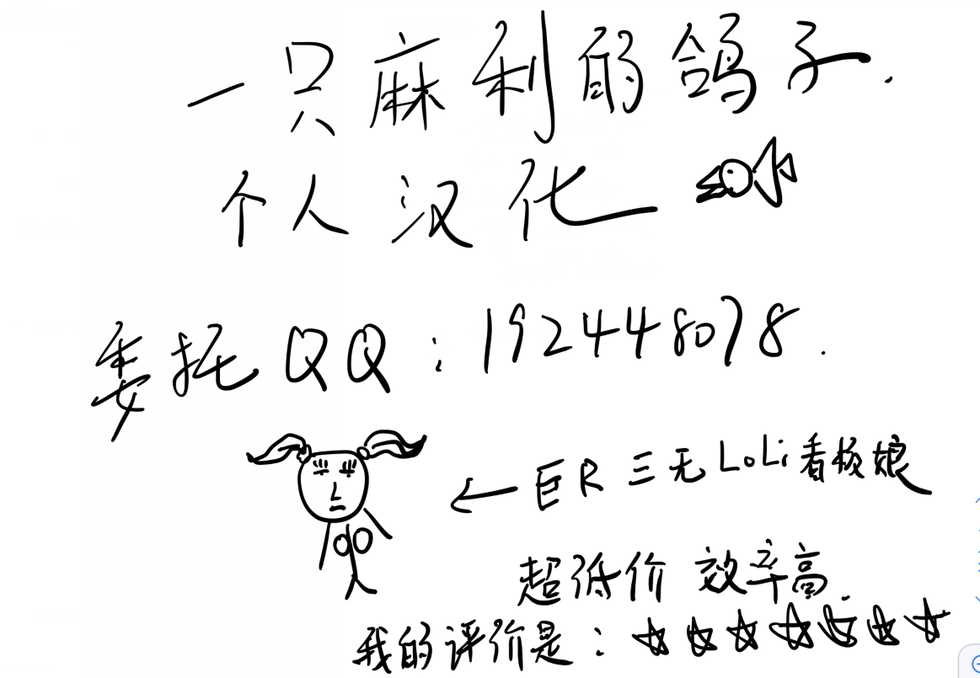 一只麻利的鸽子.
个人汉化
委托QQ:192448078.
← 巨R三无LoLi看板娘
超低价 效率高.
我的评价是:☆☆☆☆☆☆☆